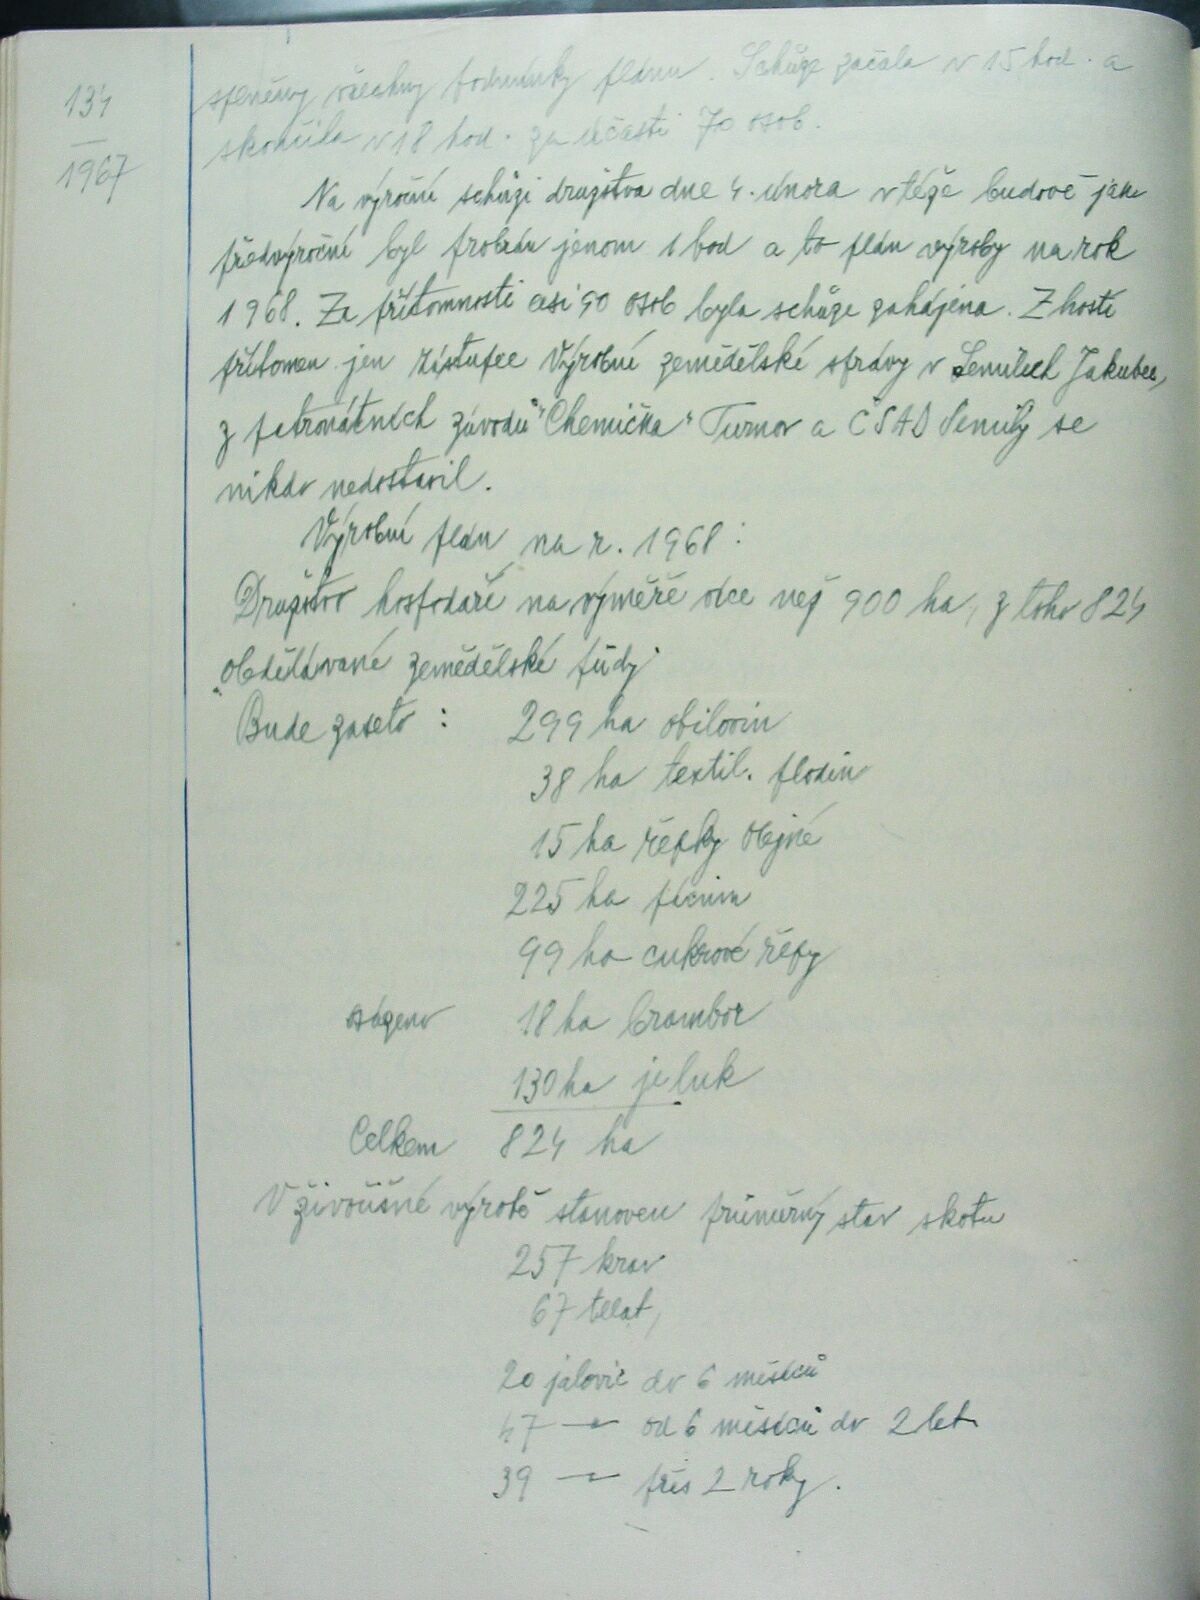 134
1967
splněny všechny podmínky plánu. Schůze začala v 15 hod. a
skončila v 18 hod. za účasti 70 osob.
Na výroční schůzi družstva dne 4. února v téže budově jako
předvýroční byl probrán jenom 1 bod a to plán výroby na rok
1968. Za přítomnosti asi 90 osob byla schůze zahájena. Z hostí
přítomen jen zástupce Výrobní zemědělské správy v Semilech Jakubec,
z patronátních závodů "Chemička" Turnov a ČSAD Semily se
nikdo nedostavil.
Výrobní plán na r. 1968:
Družstvo hospodaří na výměře více než 900 ha, z toho 824
obdělávané zemědělské půdy.
Bude zaseto : 299 ha obilovin
38 ha textil. plodin
15 ha řepky olejné
225 ha pícnin
99 ha cukrové řepy
sázeno 18 ha brambor
130 ha je luk
Celkem 824 ha
V živočišné výrobě stanoven průměrný stav skotu
257 krav
67 telat,
20 jalovic do 6 měsíců
47 —"— od 6 měsíců do 2 let
39 —"— přes 2 roky.